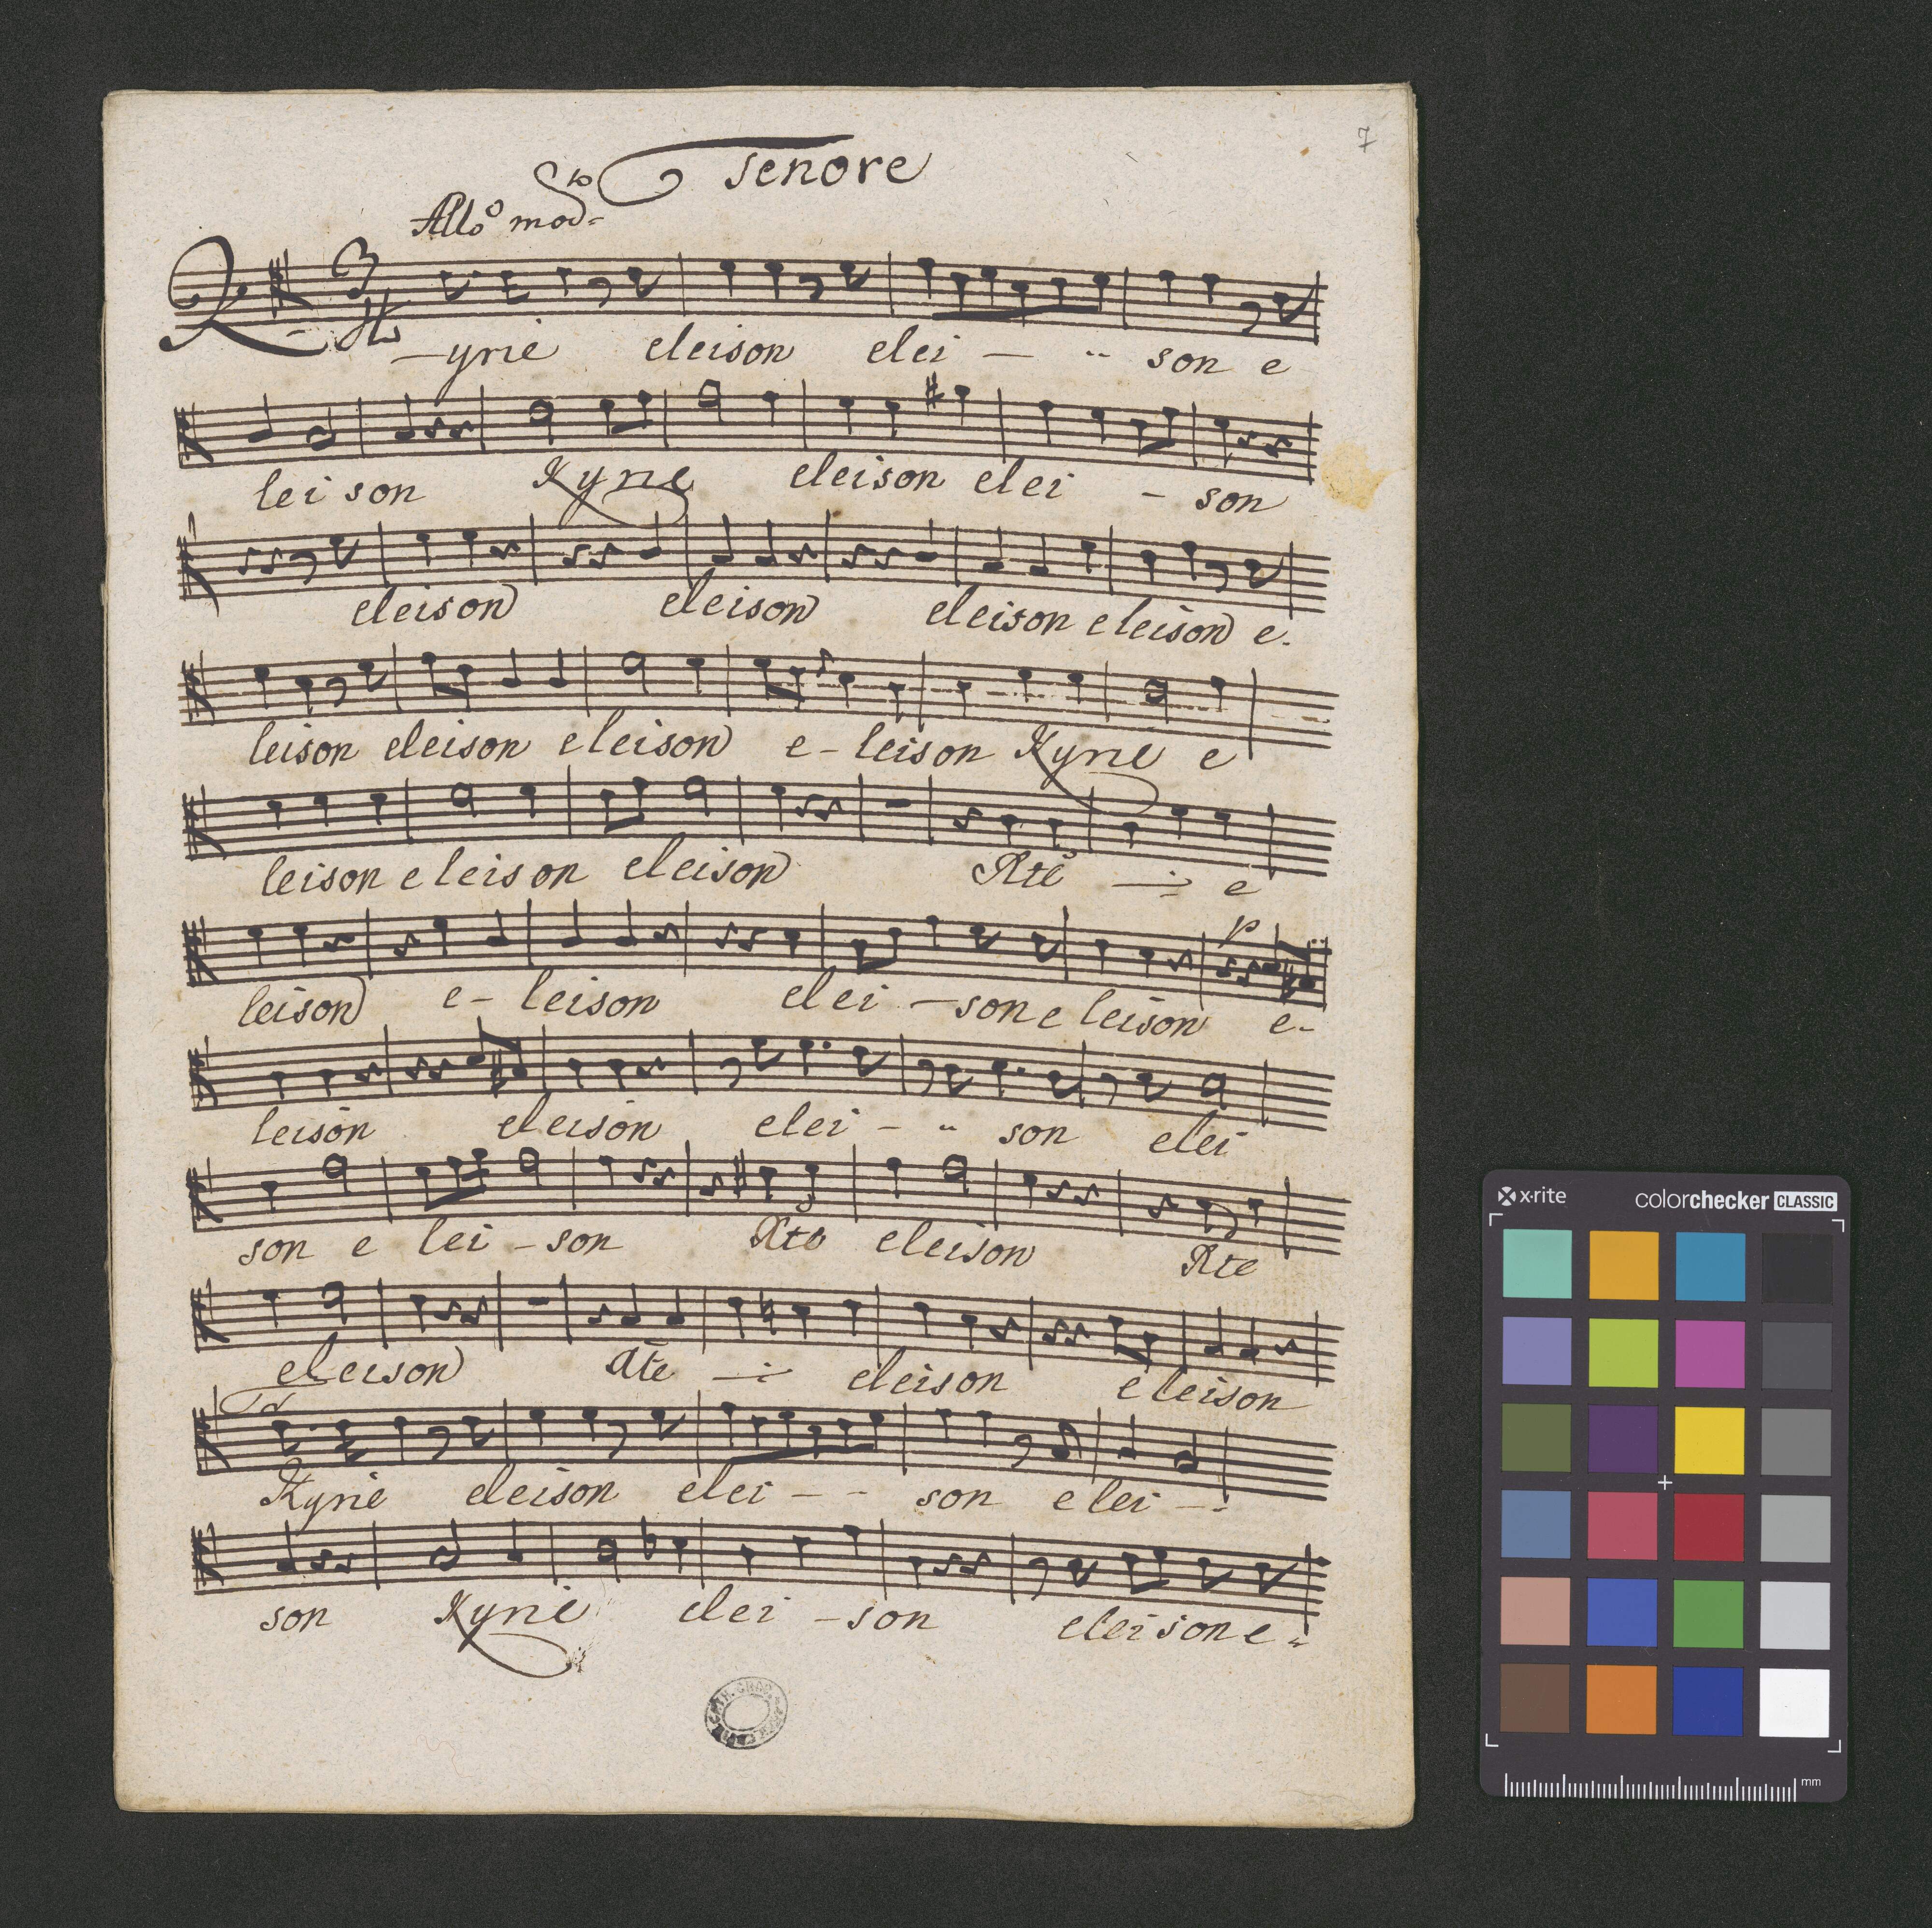 7
Tenore
Allo mod to
3/4
Kyrie eleison elei — " son e
lei son Kyrie eleison elei - son
eleison eleison eleison eleison e-
leison eleison eleison e-leison Kyrie e
leison eleison eleison Xte —:— e
leison e-leison elei — son eleison e-
p
leison eleison elei - " son elei
son e lei - son Xte eleison Xte
eleison Xte —:— eleison eleison
Kyrie eleison elei - - son elei —:
son Kyrie elei - son eleison e -
x-rite colorchecker CLASSIC
mm